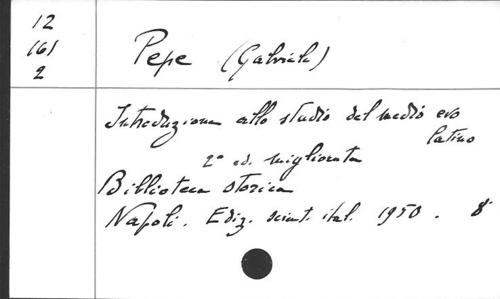 12
161
2
Pepe (Gabriele)
Introduzione allo studio del medio evo
latino
2ª ed. migliorata
Biblioteca storica
Napoli. Ediz. scient. ital. 1950. 8°